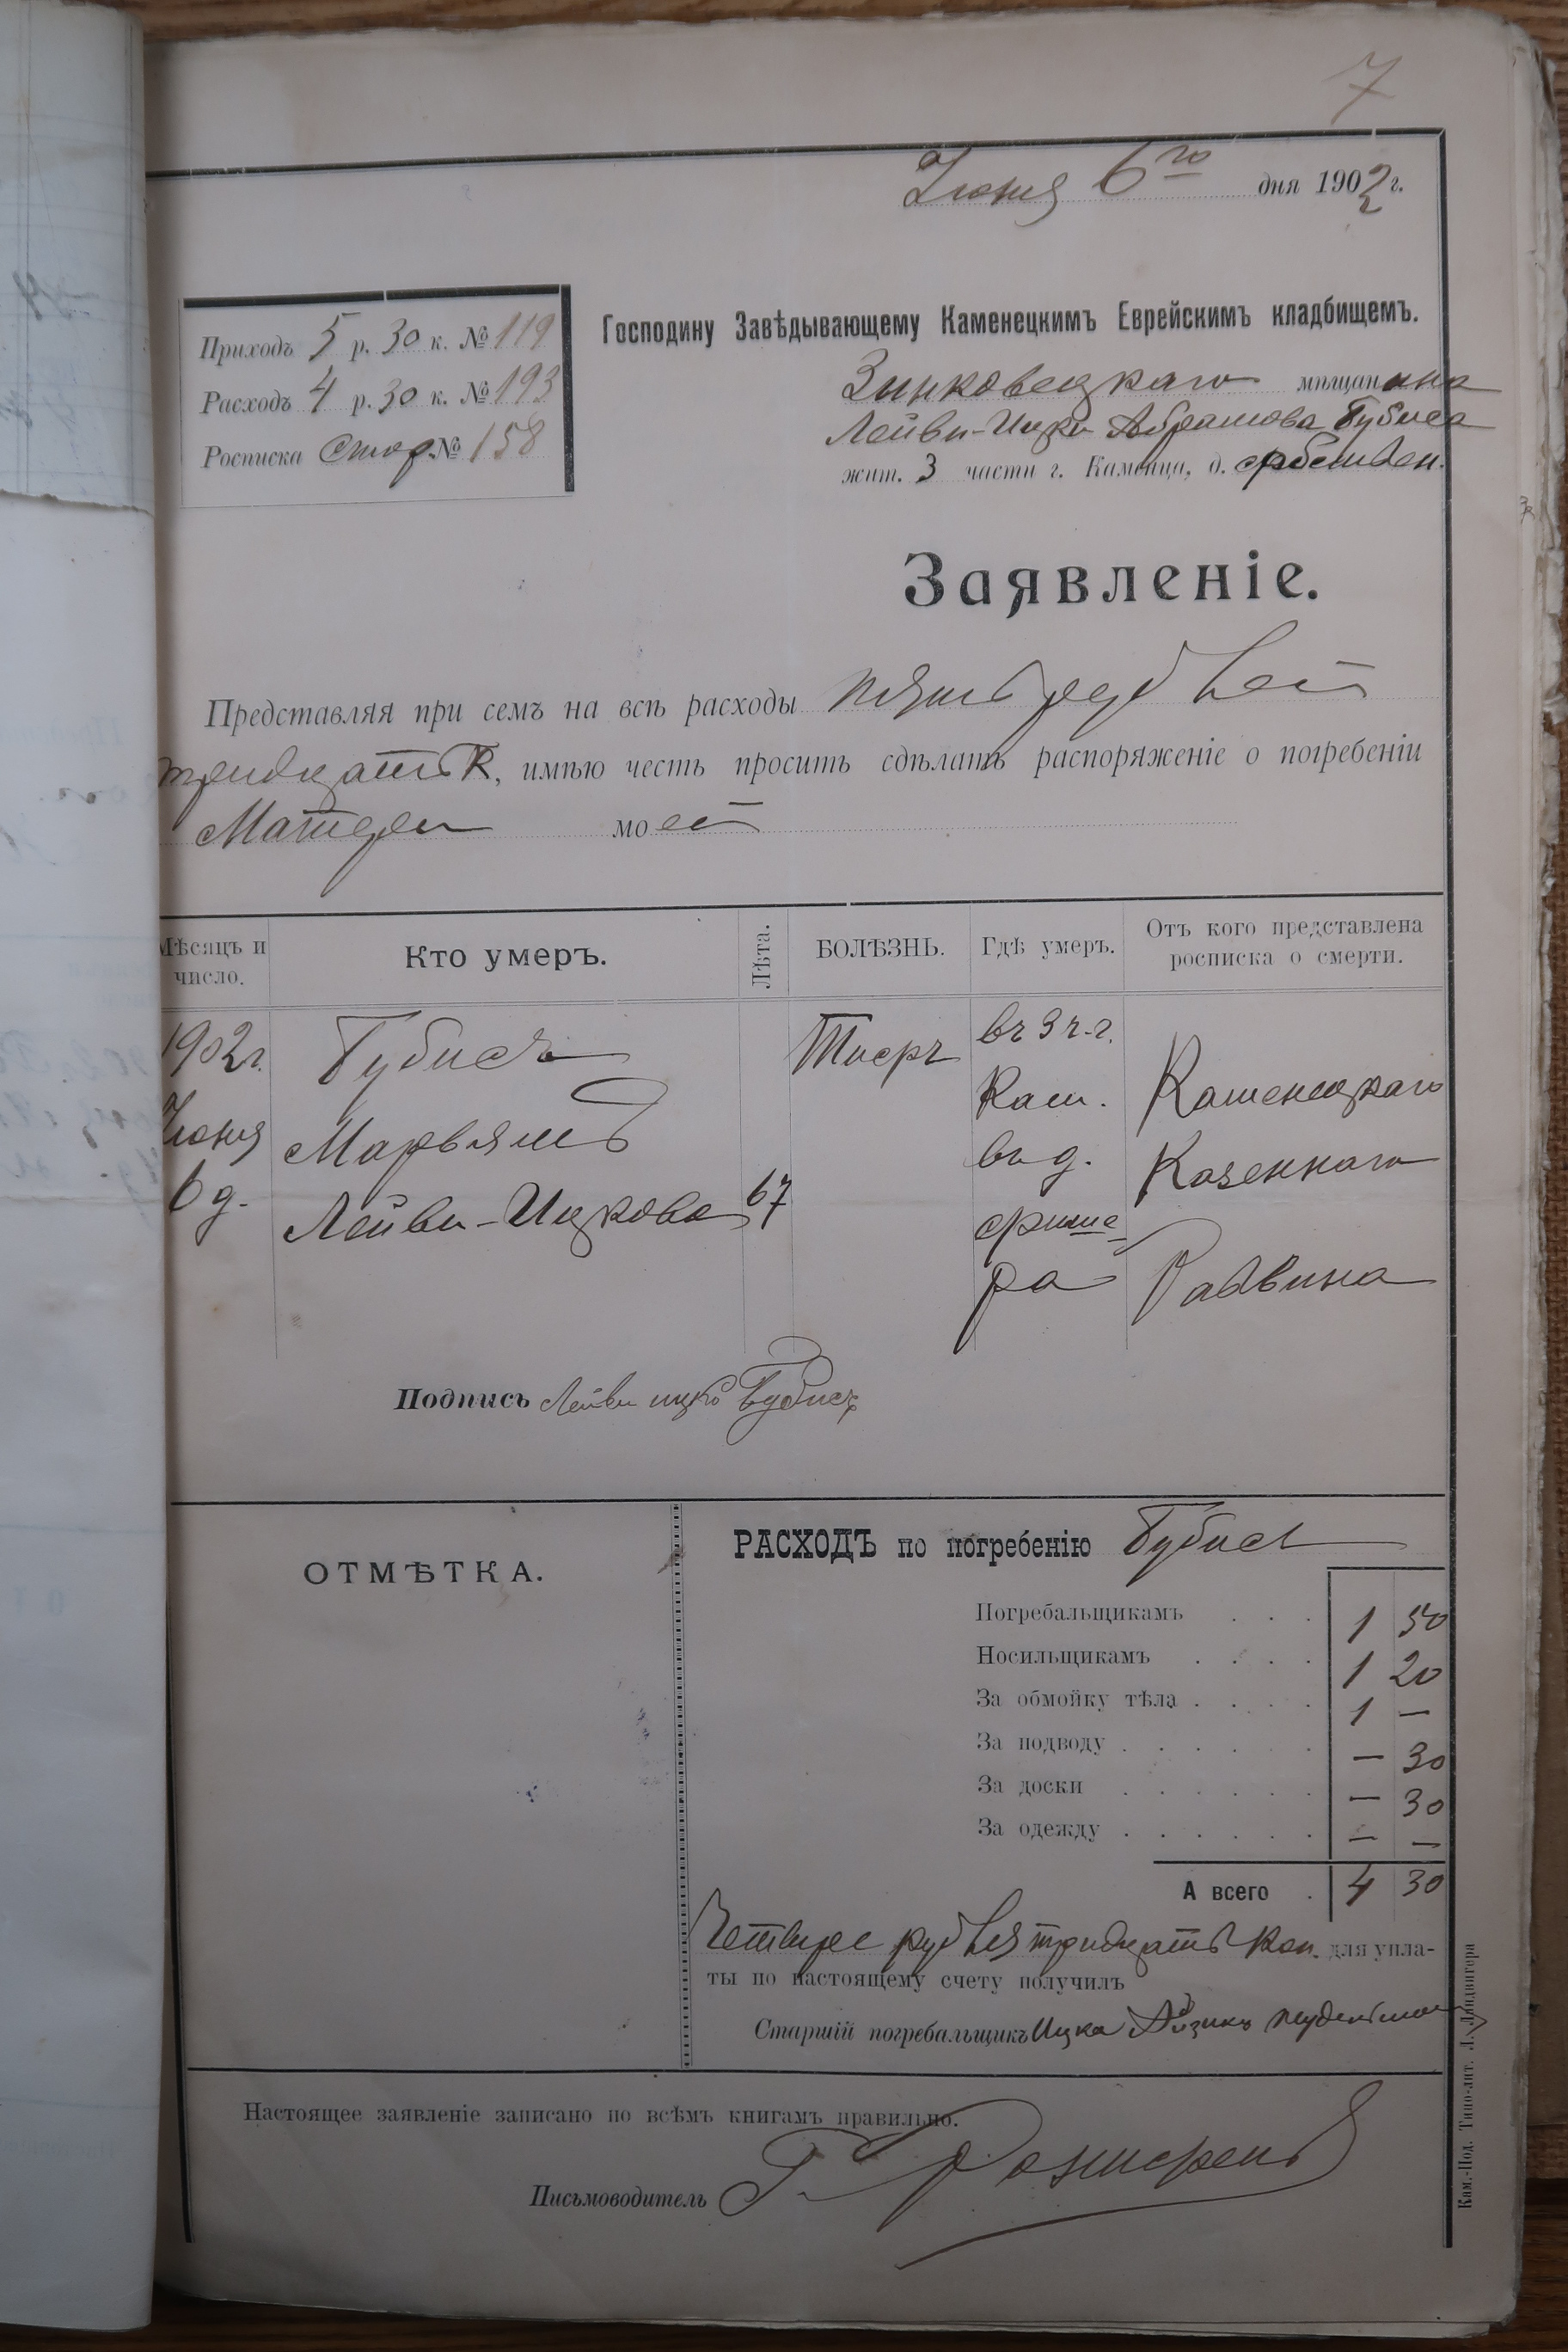 7
Июня 6го дня 1902 г.
Приходъ 5 р. 30 к. № 119
Расходъ 4 р. 30 к. № 193
Росписка Стор. № 158
Господину Завѣдывающему Каменецкимъ Еврейскимъ кладбищемъ.
Зинковецкаго мѣщанина
Лейви-Ицки Абрамова Губиса
жит. 3 части г. Каменца, д. собствен.
Заявленіе.
Представляя при семъ на всѣ расходы пять рублей
тридцать К, имѣю честь просить сдѣлать распоряженіе о погребеніи
Матери моей
Мѣсяцъ и число.
Кто умеръ.
Лѣта.
БОЛѢЗНЬ.
Гдѣ умеръ.
Отъ кого представлена росписка о смерти.
1902 г. Июня 6 д.
Губисъ Марьямъ Лейви-Ицкова
67
въ 3 ч. г. Кам. въ д.
Каменецкаго Казеннаго Раввина
Подпись Лейви ицко Губисъ
ОТМѢТКА.
РАСХОДЪ по погребенію Губисъ
Погребальщикамъ . . . 1 50
Носильщикамъ . . . . 1 20
За обмойку тѣла . . . . 1 —
За подводу . . . . . . — 30
За доски . . . . . . — 30
За одежду . . . . . . — —
А всего . 4 30
Четыре рубля тридцать коп. для упла-
ты по настоящему счету получилъ
Старшій погребальщикъ Ицка Айзикъ
Настоящее заявленіе записано по всѣмъ книгамъ правильно.
Письмоводитель
Кам.-Под. Типо-лит. Л. Ландвигера